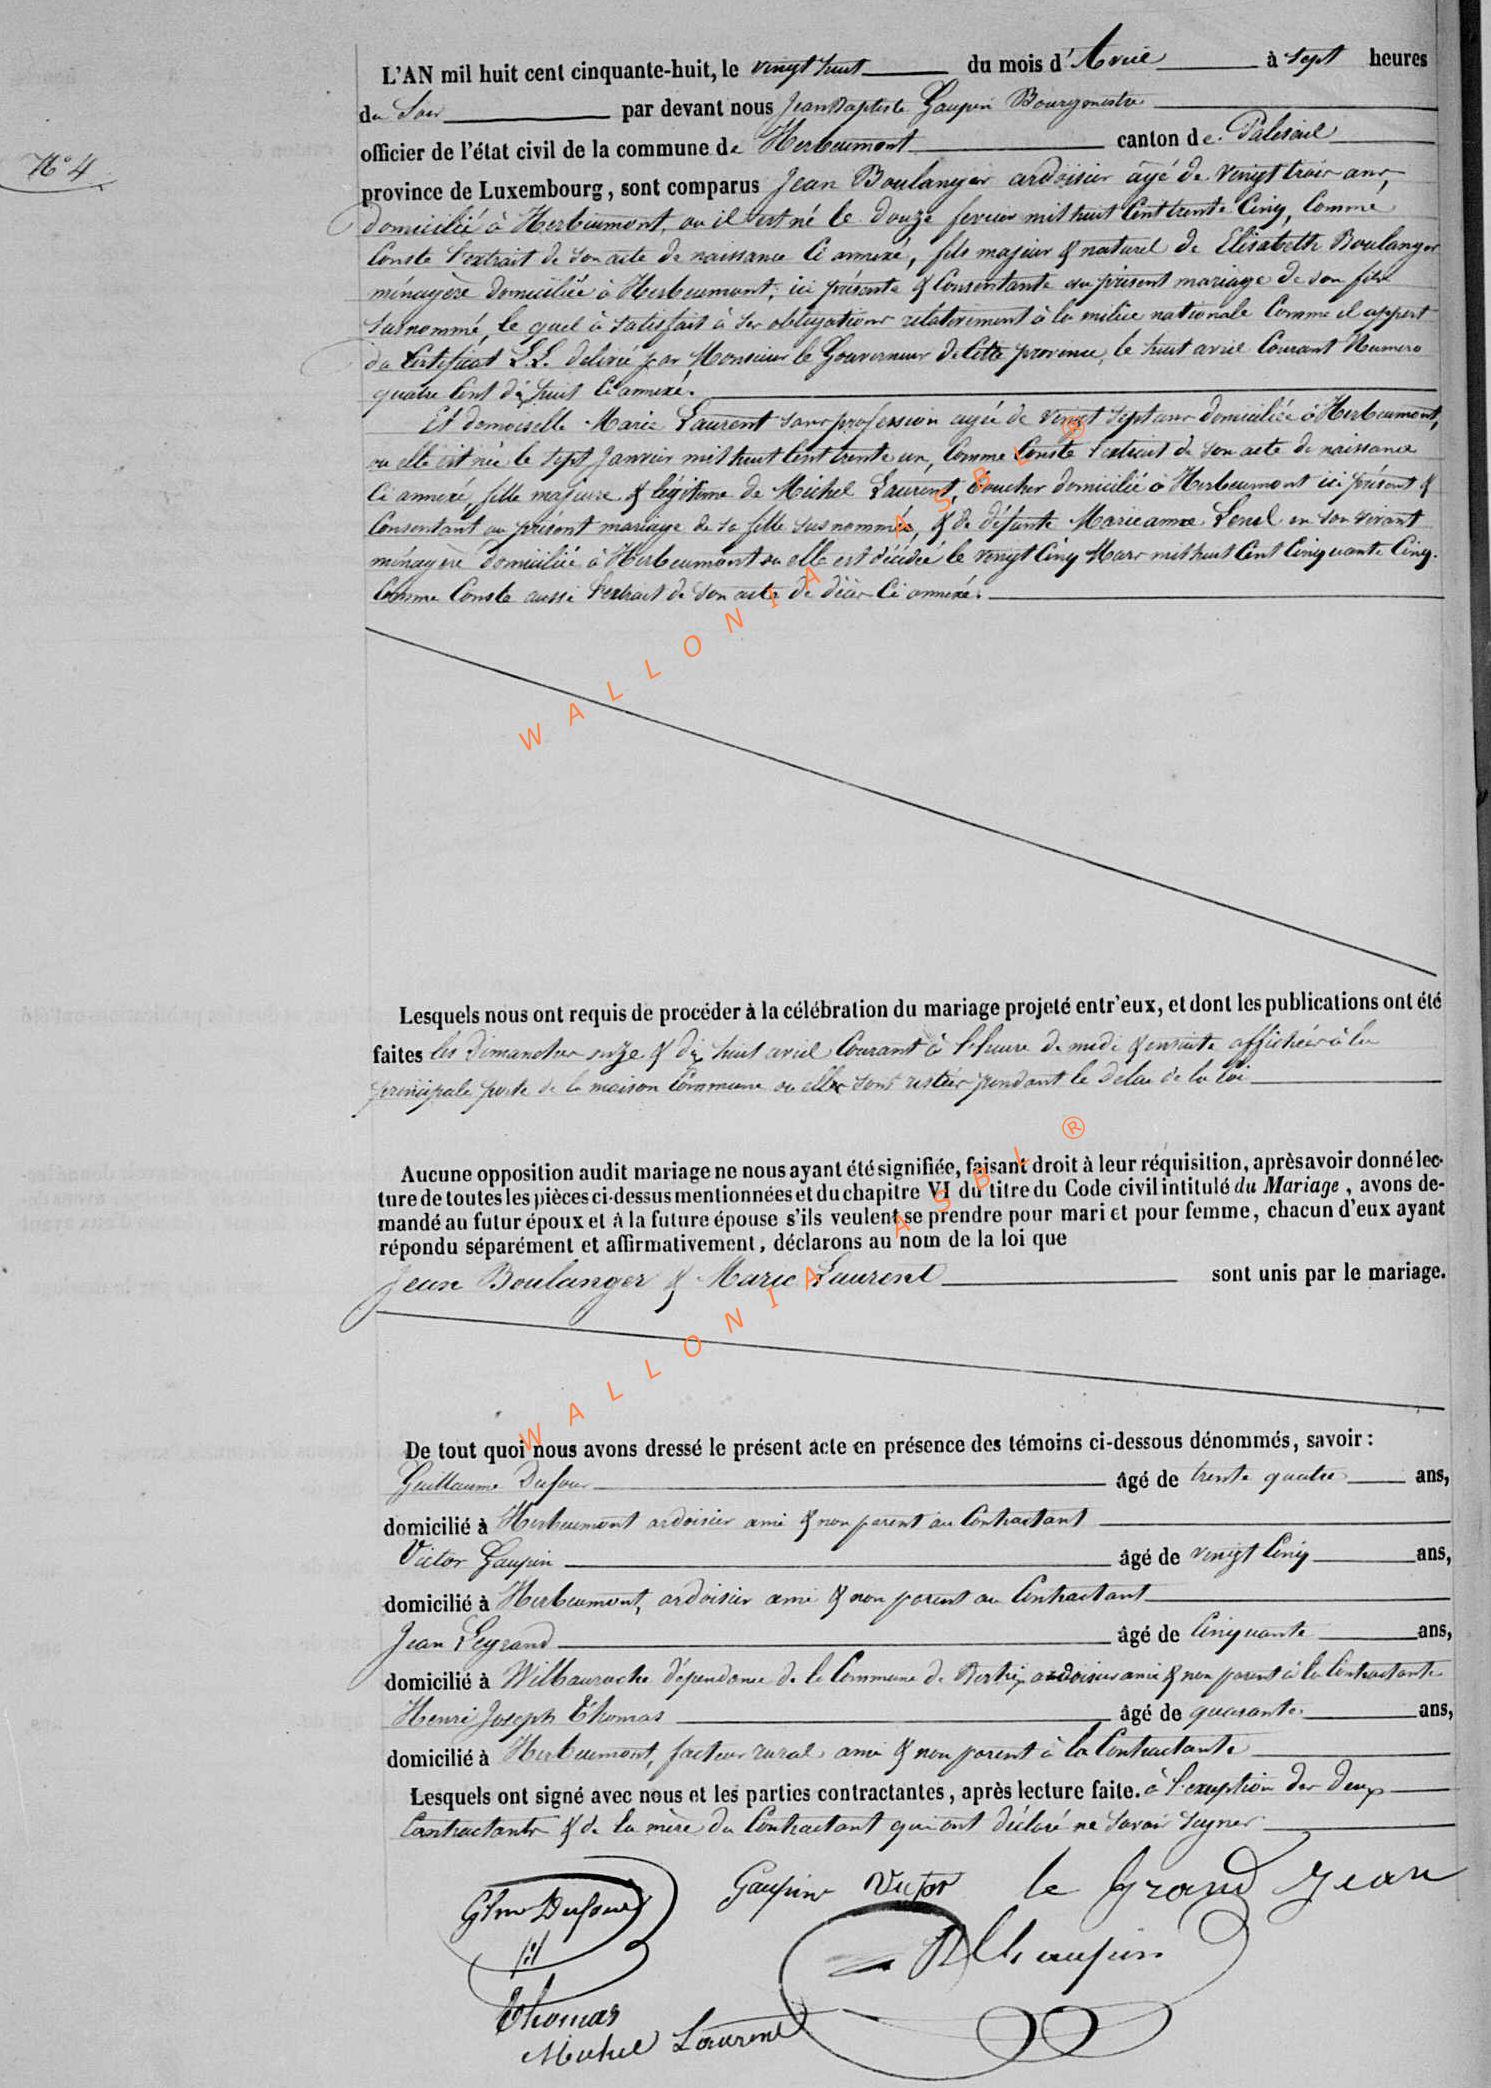 N° 4
L'AN mil huit cent cinquante-huit, le vingt huit du mois d'Avril à sept heures
du Soir par devant nous Jean Baptiste Gaupin Bourgmestre
officier de l'état civil de la commune de Herbeumont canton de Paliseul
province de Luxembourg, sont comparus Jean Boulanger ardoisier âgé de vingt trois ans,
domicilié à Herbeumont, ou il est né le douze fevrier mil huit Cent trente Cinq, Comme
Conste l'extrait de son acte de naissance Ci annexé, fils majeur & naturel de Elisabeth Boulanger
ménagère domiciliée à Herbeumont, ici présente & Consentante au présent mariage de son fils
susnommé, le quel à satisfait à ses obligations relativement à la milice nationale Comme il appert
du Certificat L.L. delivré par Monsieur le Gouverneur de Cette province, le huit avril Courant Numero
quatre Cent dix huit Ci annexé.
Et demoiselle Marie Laurent sans profession agée de vingt sept ans domiciliée à Herbeumont,
ou elle est née le sept Janvier mil huit Cent trente un, Comme Conste l'extrait de son acte de naissance
Ci annexé, fille majeure & légitime de Michel Laurent, boucher domicilié à Herbeumont ici présent &
Consentant au présent mariage de sa fille susnommée, & de défunte Marie anne Lenel en son vivant
ménagère domiciliée à Herbeumont ou elle est décédée le vingt Cinq Mars mil huit Cent Cinquante Cinq.
Comme Conste aussi l'extrait de son acte de décès Ci annexé.
WALLONIA ASBL ®
Lesquels nous ont requis de procéder à la célébration du mariage projeté entr'eux, et dont les publications ont été
faites les dimanches onze & dix huit avril Courant à l'heure de midi & ensuite affichées à la
principale porte de la maison Commune ou elles sont restées pendant le delai de la loi
Aucune opposition audit mariage ne nous ayant été signifiée, faisant droit à leur réquisition, après avoir donné lec-
ture de toutes les pièces ci-dessus mentionnées et du chapitre VI du titre du Code civil intitulé du Mariage, avons de-
mandé au futur époux et à la future épouse s'ils veulent se prendre pour mari et pour femme, chacun d'eux ayant
répondu séparément et affirmativement, déclarons au nom de la loi que
Jean Boulanger & Marie Laurent sont unis par le mariage.
WALLONIA ASBL ®
De tout quoi nous avons dressé le présent acte en présence des témoins ci-dessous dénommés, savoir :
Guillaume Dufour âgé de trente quatre ans,
domicilié à Herbeumont ardoisier ami & non parent au Contractant
Victor Gaupin âgé de vingt Cinq ans,
domicilié à Herbeumont, ardoisier ami & non parent au Contractant
Jean Legrand âgé de Cinquante ans,
domicilié à Wilbauroche dépendance de la Commune de Bertrix ardoisier ami & non parent à la Contractante
Henri Joseph Thomas âgé de quarante ans,
domicilié à Herbeumont, facteur rural ami & non parent à la Contractante
Lesquels ont signé avec nous et les parties contractantes, après lecture faite. à l'exception des deux
Contractants & de la mère du Contractant qui ont déclaré ne savoir signer
Glme Dufour Gaupin Victor le Grand Jean
Thomas
Michel Laurent